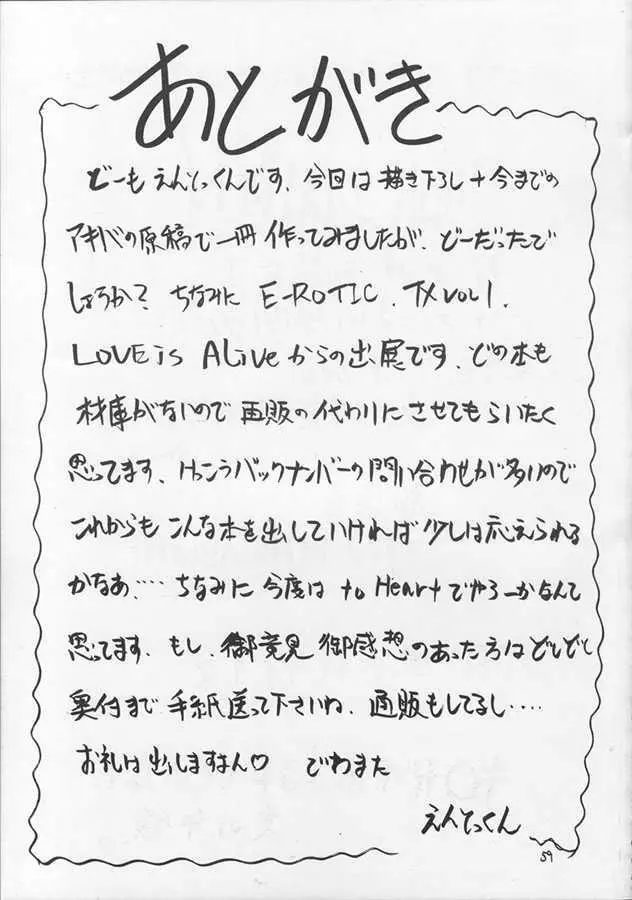 あとがき
どーも えんとっくんです、今回は描き下ろし+今までの
アキバの原稿で一冊作ってみましたが、どーだったで
しょうか? ちなみに E-ROTIC、TX VOL1、
LOVE is ALive からの出展です、どの本も
在庫がないので 再販の代わりに させてもらいたく
思ってます、バックナンバーの問い合わせが多いので
これからも こんな本を出していければ 少しは応えられる
かなあ‥‥ ちなみに 今度は to Heart でやろーかなんて
思ってます、もし、御意見 御感想のあった方は どしどし
奥付まで 手紙送って下さいね、通販もしてるし‥‥
お礼は出しますよん♡ でわまた
えんとっくん
59